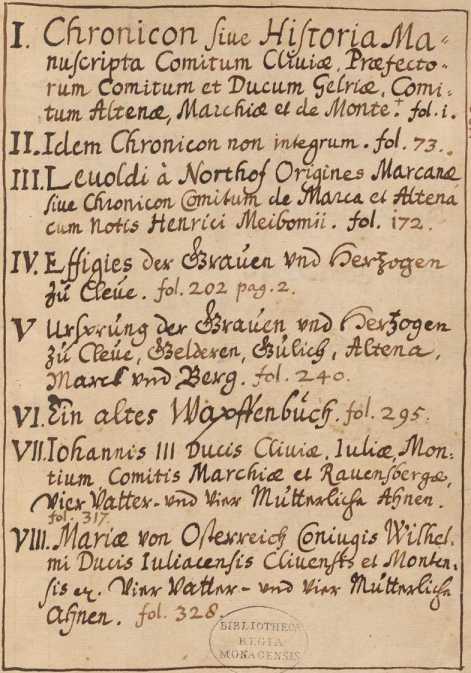 I. Chronicon siue Historia Ma-
nuscripta Comitum Cliuiæ, Præfecto-
rum Comitum et Ducum Gelriæ, Comi-
tum Altenæ, Marchiæ et de Monte. fol. 1.
II. Idem Chronicon non integrum. fol. 73.
III. Leuoldi à Northof Origines Marcanæ
siue Chronicon Comitum de Marca et Altena
cum notis Henrici Meibomii. fol. 172.
IV. Effigies der Grauen vnd Hertzogen
zu Cleue. fol. 202 pag. 2.
V Ursprung der Grauen vnd Hertzogen
zu Cleue, Gelderen, Gülich, Altena,
Marck vnd Berg. fol. 240.
VI. Ein altes Wapffenbuch. fol. 295.
VII. Iohannis III Ducis Cliuiæ, Iuliæ, Mon-
tium, Comitis Marchiæ et Rauensbergæ,
Vier Vatter- vnd Vier Mütterliche Ahnen.
fol. 317.
VIII. Mariæ von Osterreich Coniugis Wilhel-
mi Ducis Iuliacensis Cliuensis et Monten-
sis etc. Vier Vatter- vnd Vier Mütterliche
Ahnen. fol. 328.
BIBLIOTHECA
REGIA
MONACENSIS